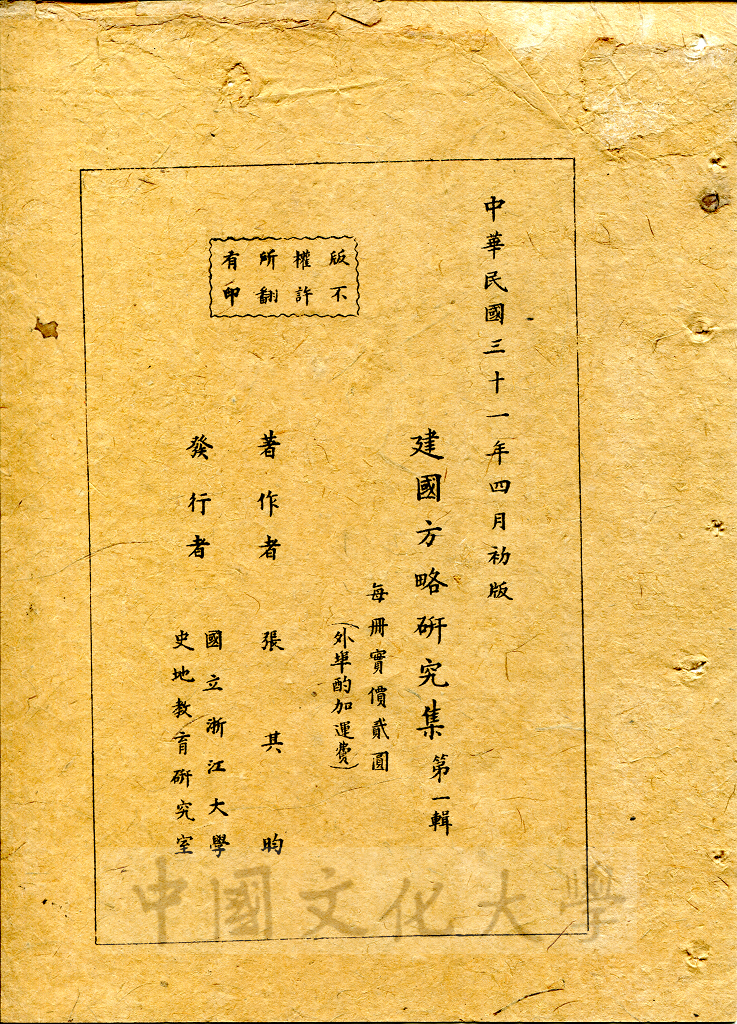 中華民國三十一年四月初版
建國方略研究集 第一輯
每冊實價貳圓
(外埠酌加運費)
版權所有
不許翻印
著作者 張其昀
發行者 國立浙江大學
史地教育研究室
中國文化大學